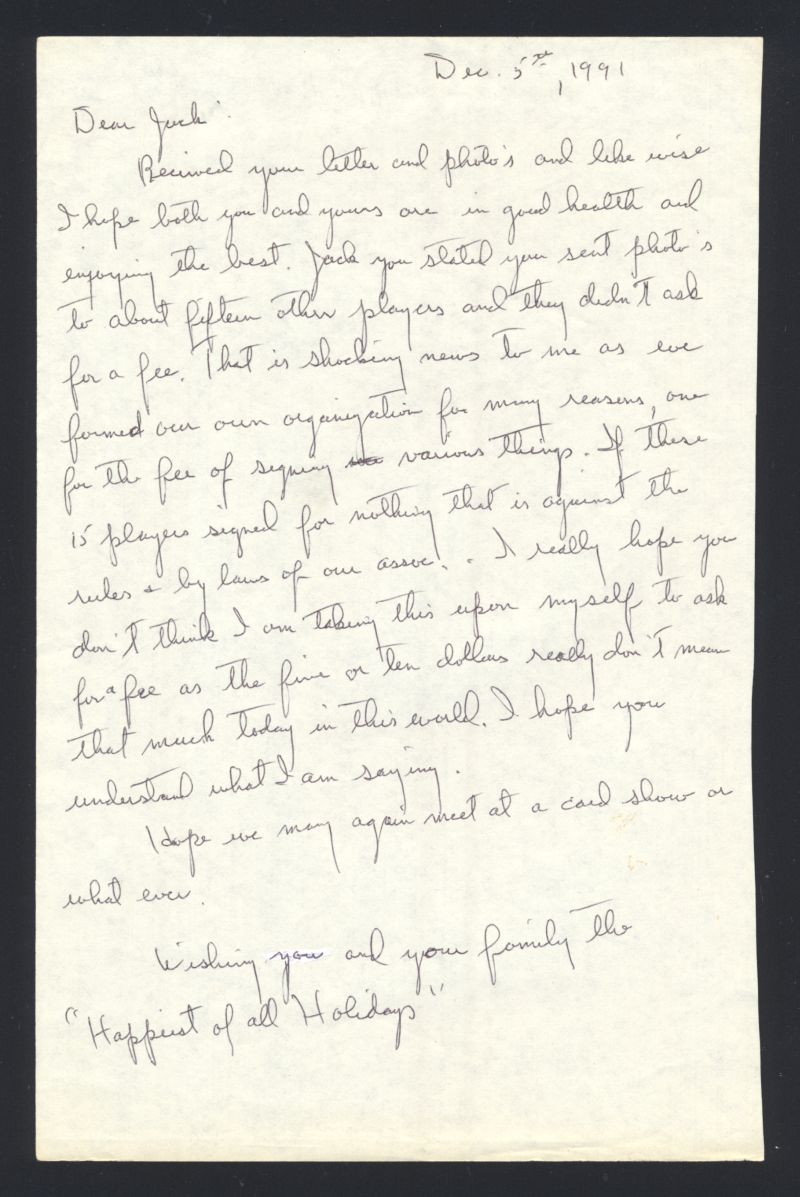 Dec. 5th, 1991
Dear Jack:
Recieved your letter and photo's and like wise
I hope both you and yours are in good health and
enjoying the best. Jack you stated you sent photo's
to about fifteen other players and they didn't ask
for a fee. That is shocking news to me as we
formed our own organization for many reasons, one
for the fee of signing various things. If these
15 players signed for nothing that is against the
rules & by laws of our assoc.. I really hope you
don't think I am taking this upon myself to ask
for a fee as the five or ten dollars really don't mean
that much today in this world. I hope you
understand what I am saying.
Hope we may again meet at a card show or
what ever.
Wishing you and your family the
"Happiest of all Holidays"